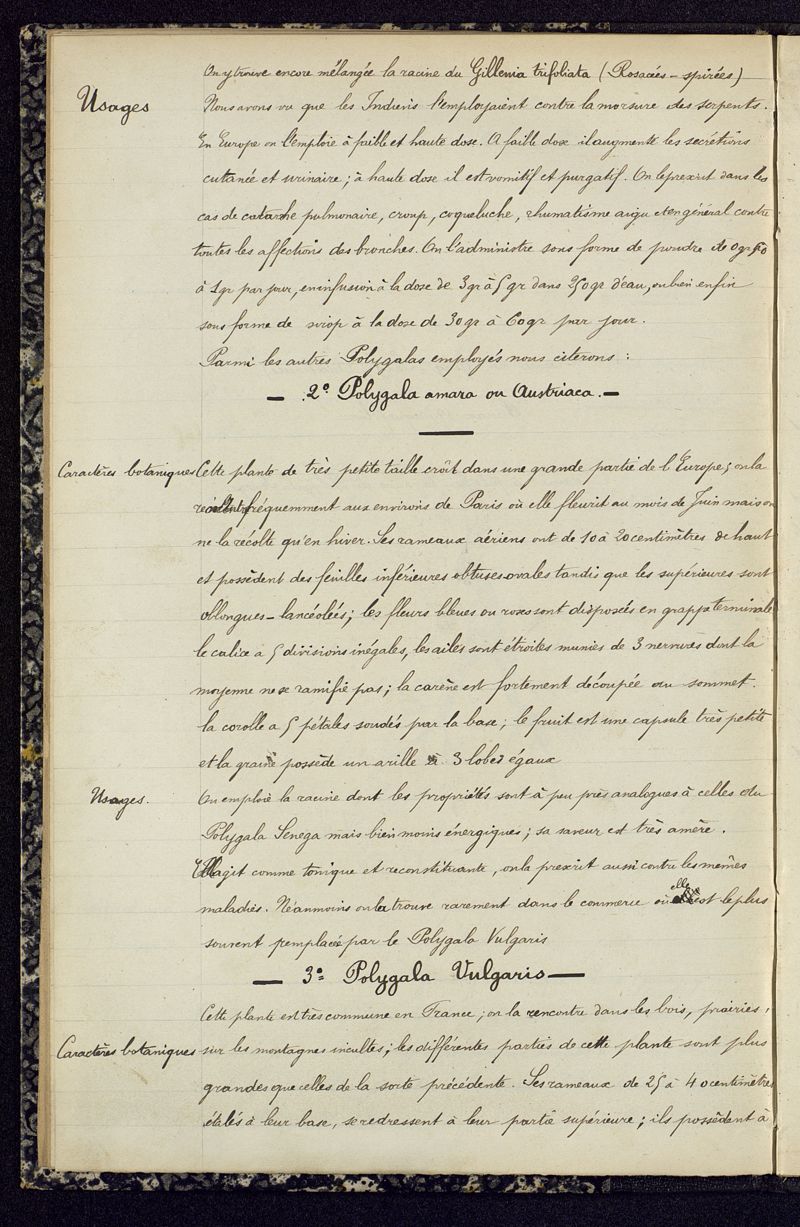 On y trouve encore mélangée la racine du Gillenia trifoliata (Rosacées – spirées)
Usages
Nous avons vu que les Indiens l'employaient contre la morsure des serpents.
En Europe on l'emploie à faible et haute dose. A faible dose il augmente les secrétions
cutanée et urinaire ; à haute dose il est vomitif et purgatif. On le prescrit dans les
cas de catarrhe pulmonaire, croup, coqueluche, rhumatisme aigu et en général contre
toutes les affections des bronches. On l'administre sous forme de poudre de 0gr50
à 1gr par jour, en infusion à la dose de 3gr à 5gr dans 250gr d'eau, ou bien enfin
sous forme de sirop à la dose de 30gr à 60gr par jour.
Parmi les autres Polygalas employés nous citerons :
— 2° Polygala amara ou Austriaca. —
Caractères botaniques Cette plante de très petite taille croît dans une grande partie de l'Europe ; on la
rencontre fréquemment aux environs de Paris où elle fleurit au mois de Juin mais on
ne la récolte qu'en hiver. Ses rameaux aériens ont de 10 à 20 centimètres de haut
et possèdent des feuilles inférieures obtuses ovales tandis que les supérieures sont
oblongues – lancéolées ; les fleurs bleues ou roses sont disposées en grappe terminale
le calice a 5 divisions inégales, les ailes sont étroites munies de 3 nervures dont la
moyenne ne se ramifie pas ; la carène est fortement découpée au sommet.
la corolle a 5 pétales soudés par la base ; le fruit est une capsule très petite
et la graine possède un arille à 3 lobes égaux
Usages.
On emploie la racine dont les propriétés sont à peu près analogues à celles du
Polygala Senega mais bien moins énergiques ; sa saveur est très amère.
Elle agit comme tonique et reconstituante, on la prescrit aussi contre les mêmes
maladies. Néanmoins on la trouve rarement dans le commerce où elle est le plus
souvent remplacée par le Polygala Vulgaris
— 3° Polygala Vulgaris —
Cette plante est très commune en France ; on la rencontre dans les bois, prairies,
Caractères botaniques sur les montagnes incultes ; les différentes parties de cette plante sont plus
grandes que celles de la sorte précédente. Ses rameaux de 25 à 40 centimètres
étalés à leur base, se redressent à leur partie supérieure ; ils possèdent à